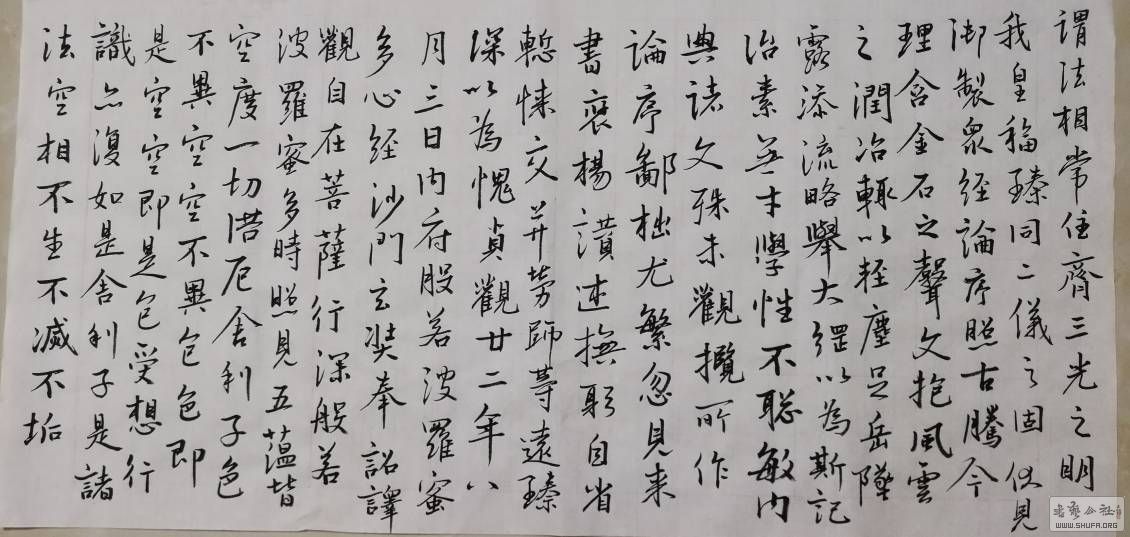 謂法相常住齊三光之明
我皇福臻同二儀之固伏見
御製眾經論序照古騰今
理含金石之聲文抱風雲
之潤治輒以輕塵足岳墜
露添流略舉大綱以為斯記
治素無才學性不聰敏內
典諸文殊未觀攬所作
論序鄙拙尤繁忽見來
書褒揚讚述撫躬自省
慙悚交并勞師等遠臻
深以為愧貞觀廿二年八
月三日內府般若波羅蜜
多心經沙門玄奘奉詔譯
觀自在菩薩行深般若
波羅蜜多時照見五蘊皆
空度一切苦厄舍利子色
不異空空不異色色即
是空空即是色受想行
識亦復如是舍利子是諸
法空相不生不滅不垢
書藝公社
WWW.SHUFA.ORG